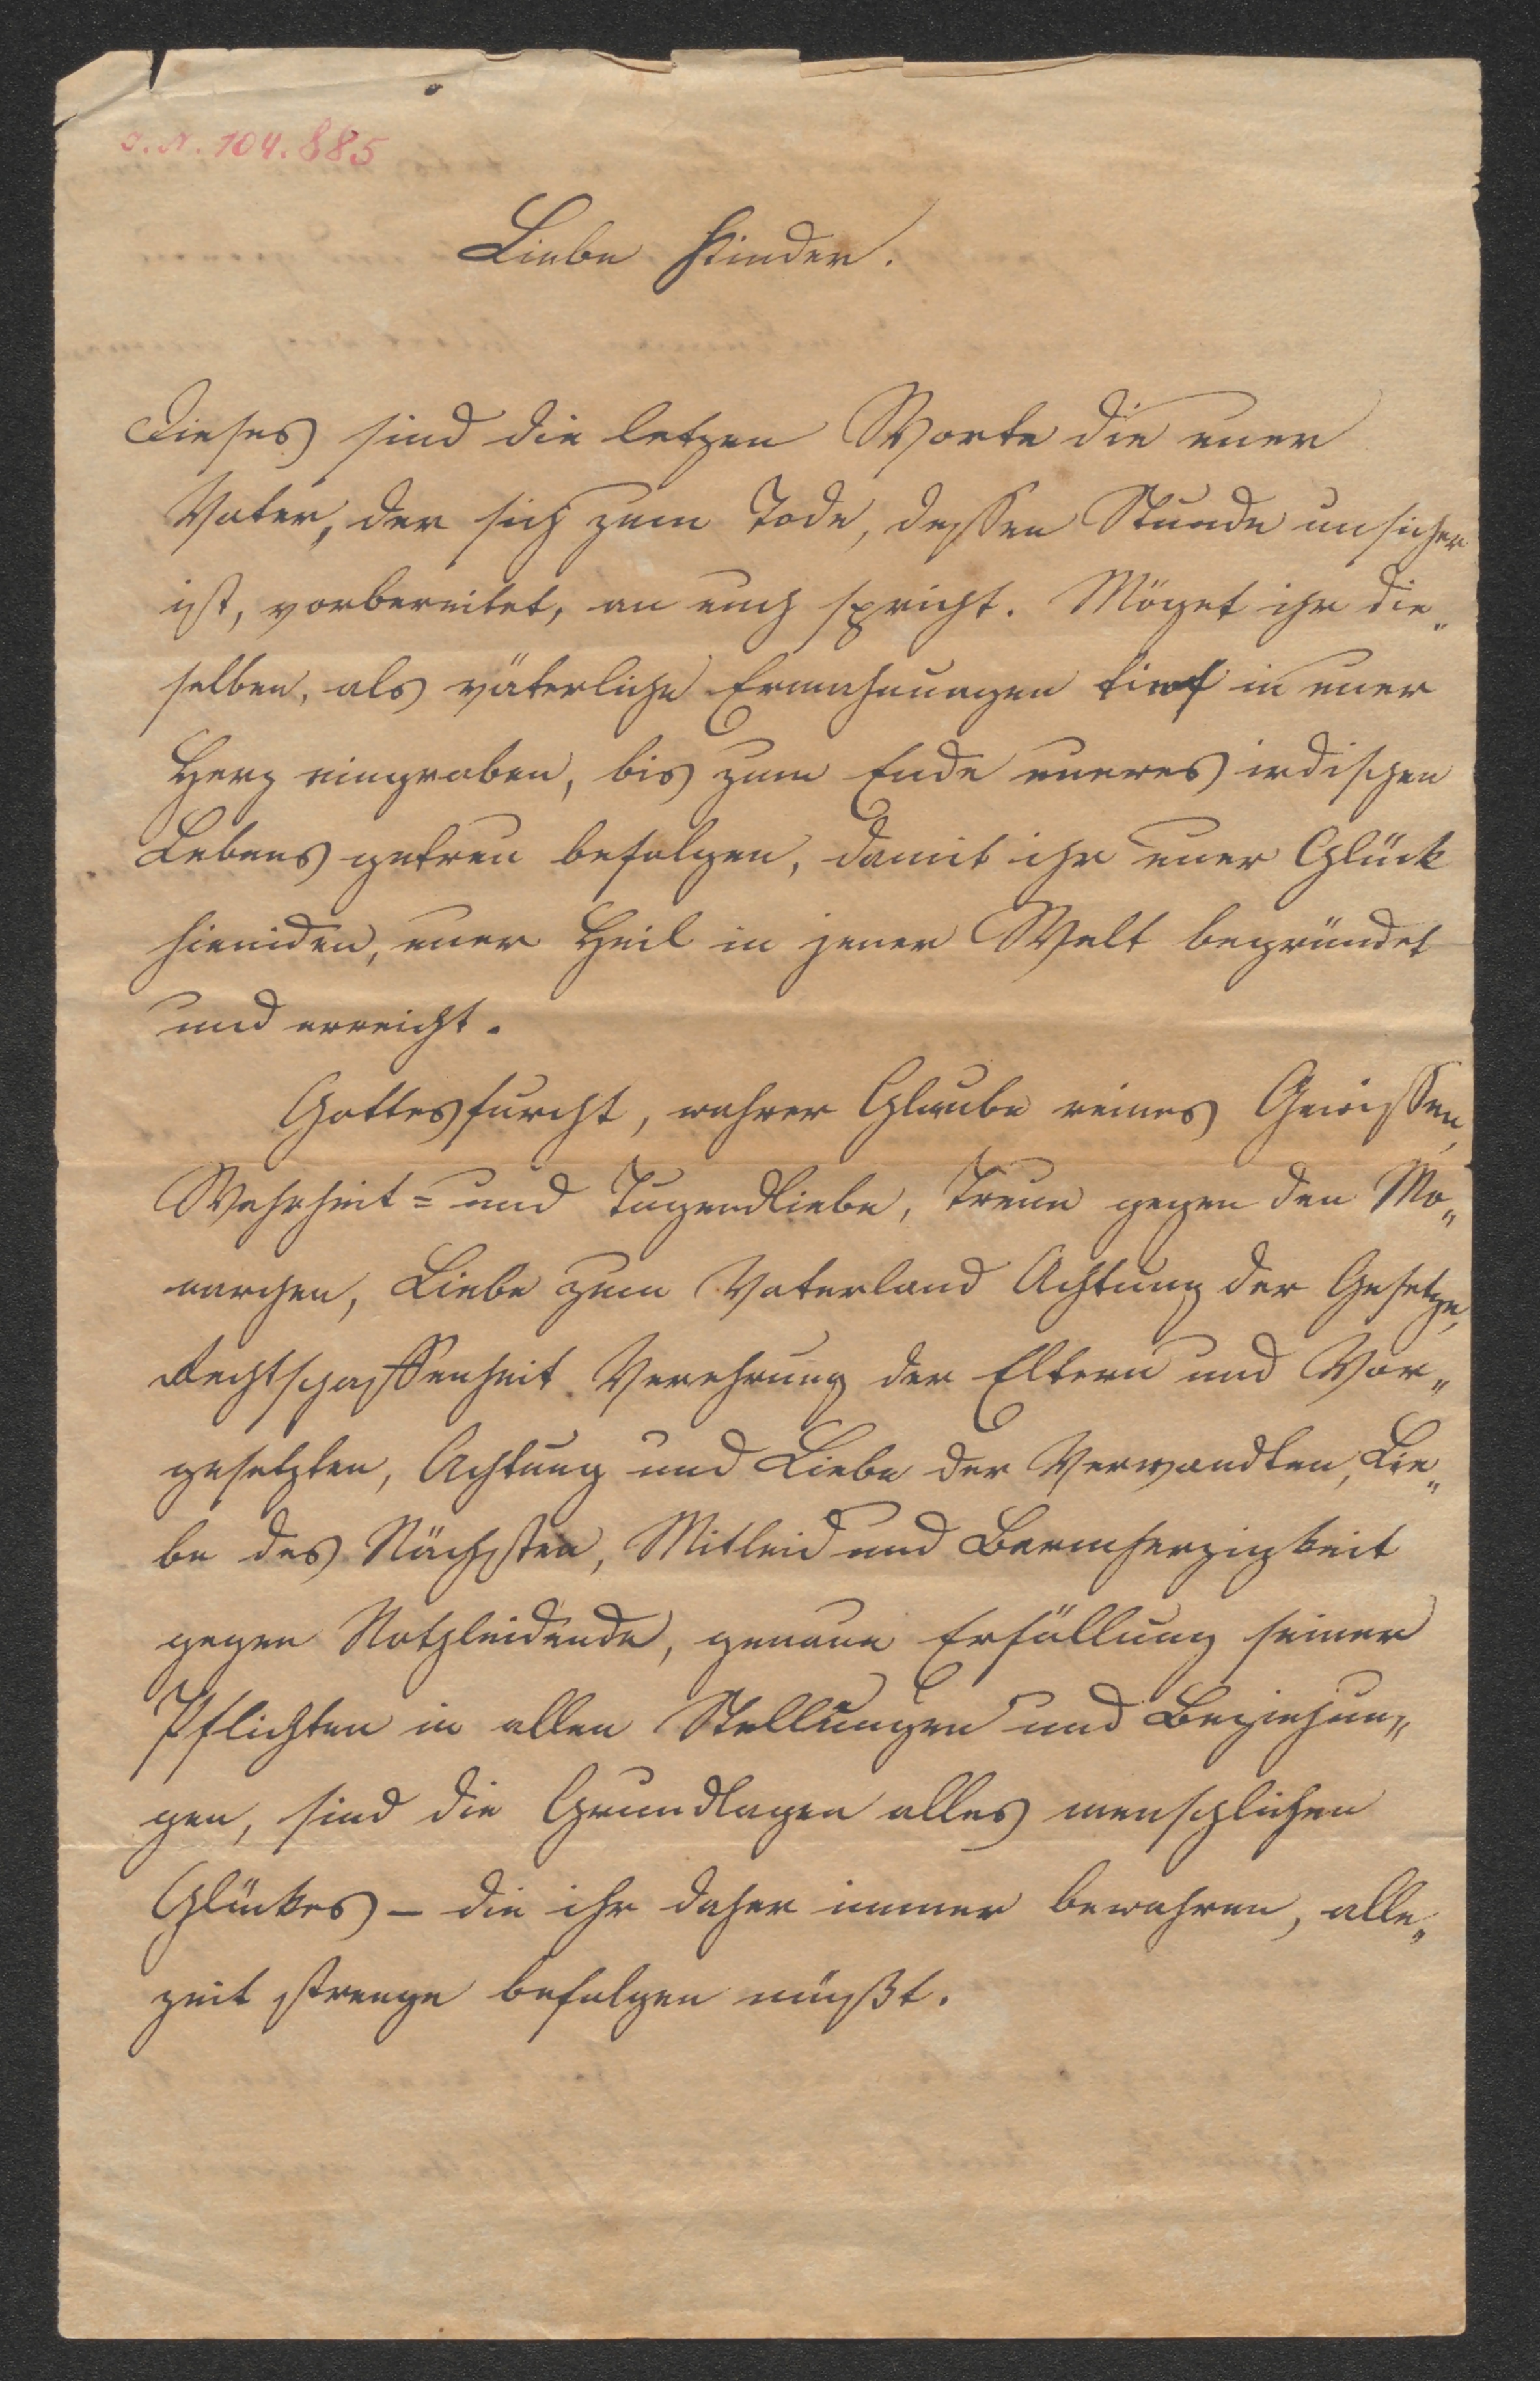 J. N. 104.885
Liebe Kinder.
Dieses sind die letzen Worte die euer
Vater, der sich zum Tode, dessen Stunde unsicher
ist, vorbereitet, an euch spricht. Möget ihr die„
selben, als väterliche Ermahnungen tief in euer
Herz eingraben, bis zum Ende eueres irdischen
Lebens getreu befolgen, damit ihr euer Glück
hieniden, euer Heil in jener Welt begründet
und erreicht.
Gottesfurcht, wahrer Glaube reines Gewissen,
Wahrheit= und Tugendliebe, Treue gegen den Mo„
narchen, Liebe zum Vaterland Achtung der Gesetze,
Rechtschaffenheit Verehrung der Eltern und Vor„
gesetzten, Achtung und Liebe der Verwandten, Lie„
be des Nächsten, Mitleid und Barmherzigkeit
gegen Nothleidende, genaue Erfüllung seiner
Pflichten in allen Stellungen und Beziehun„
gen, sind die Grundlagen alles menschlichen
Glückes – die ihr daher immer bewahren, alle„
zeit strenge befolgen müßt.